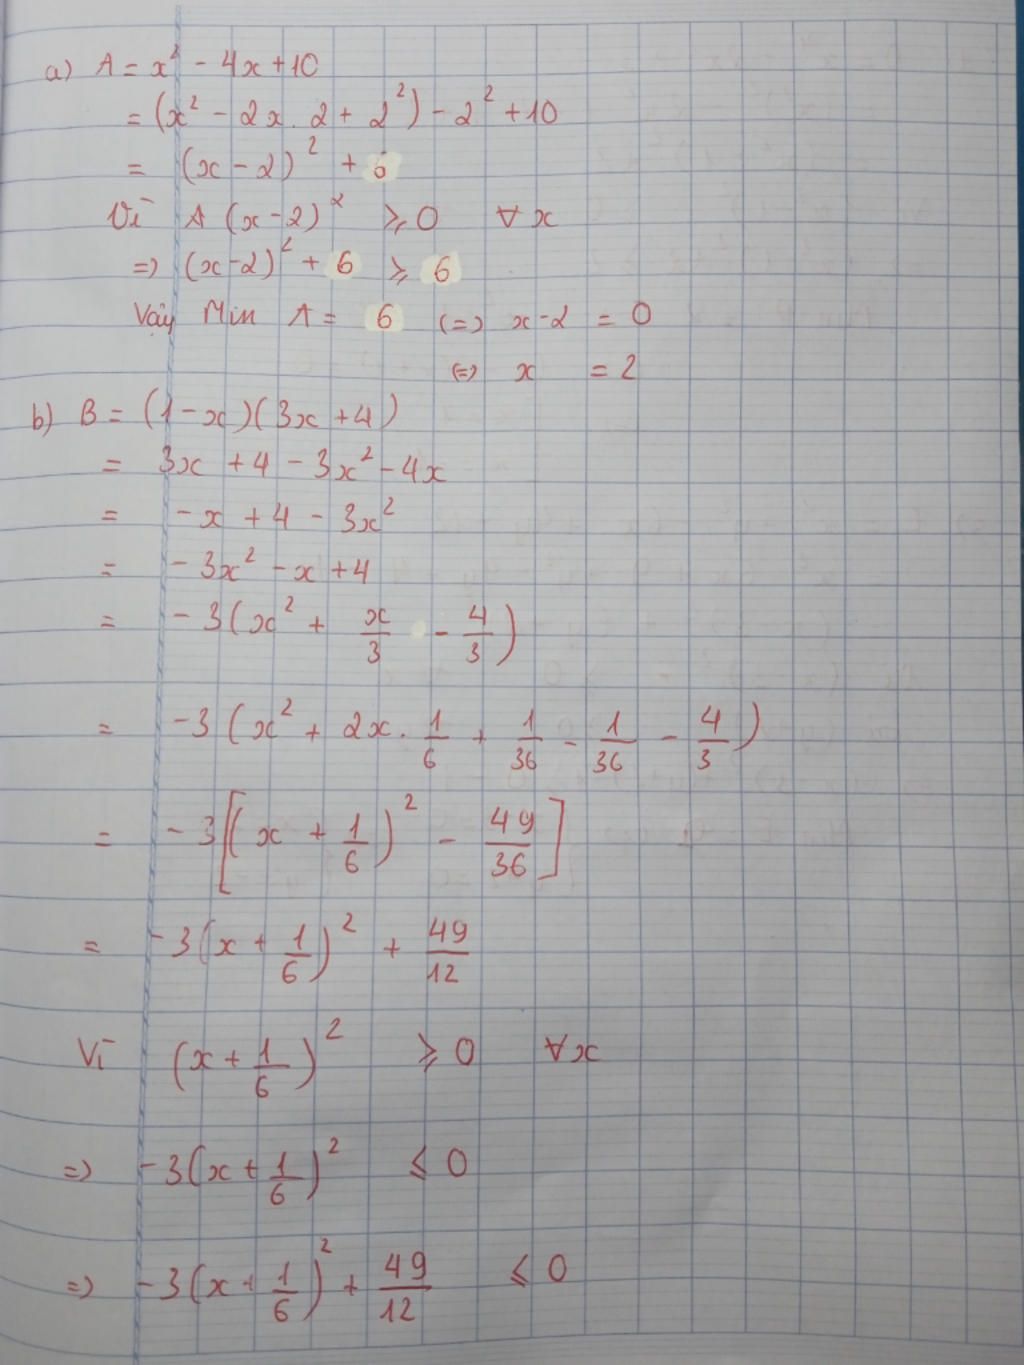 a) A = x² - 4x + 10
= (x² - 2x . 2 + 2²) - 2² + 10
= (x - 2)² + 6
Vì A (x - 2)² ⩾ 0 ∀ x
=> (x - 2)² + 6 ⩾ 6
Vậy Min A = 6 (=) x - 2 = 0
(=) x = 2
b) B = (1 - x)(3x + 4)
= 3x + 4 - 3x² - 4x
= - x + 4 - 3x²
= - 3x² - x + 4
= - 3(x² + x/3 - 4/3)
= -3 (x² + 2x . 1/6 + 1/36 - 1/36 - 4/3)
= - 3[(x + 1/6)² - 49/36]
= - 3(x + 1/6)² + 49/12
Vì (x + 1/6)² ⩾ 0 ∀x
=> - 3(x + 1/6)² ⩽ 0
=> - 3(x + 1/6)² + 49/12 ⩽ 0